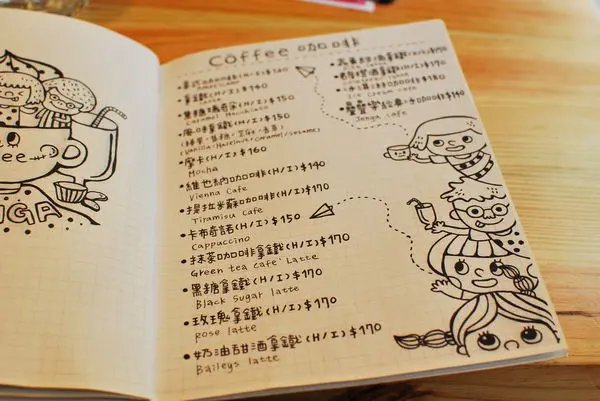 Coffee 咖啡
•美式咖啡(H/I)$120
Americano
•拿鐵(H/I)$140
Latte
•焦糖瑪奇朵(H/I)$150
Caramel Macchiato
•風味拿鐵(H/I)$150
(Vanilla/Hazelnut/caramel/sesame)
•摩卡(H/I)$160
Mocha
•維也納咖啡(H/I)$140
Vienna Cafe
•提拉米蘇咖啡(H/I)$170
Tiramisu Cafe
•卡布奇諾(H/I)$150
Cappuccino
•抹茶咖啡拿鐵(H/I)$170
Green tea cafe' Latte
•黑糖拿鐵(H/I)$170
Black Sugar latte
•玫瑰拿鐵(H/I)$170
rose latte
•奶油甜酒拿鐵(H/I)$170
Baileys latte
拿鐵$170
酒拿鐵$170
•冰淇淋咖啡$180
Ice cream cafe
咖啡$140
Jenga cafe
ee
NGA